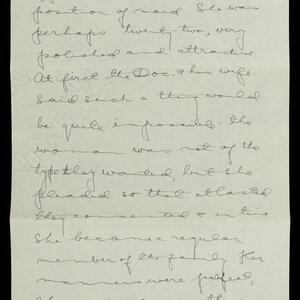 position of maid. She was
perhaps twenty-two, very
polished and attractive.
At first the Doc. & his wife
said such a thing would
be quite impossible; the
woman was not of the
type they wanted, but she
pleaded so that at last
they consented & in time
she became a regular
member of the family. Her
manners were perfect,